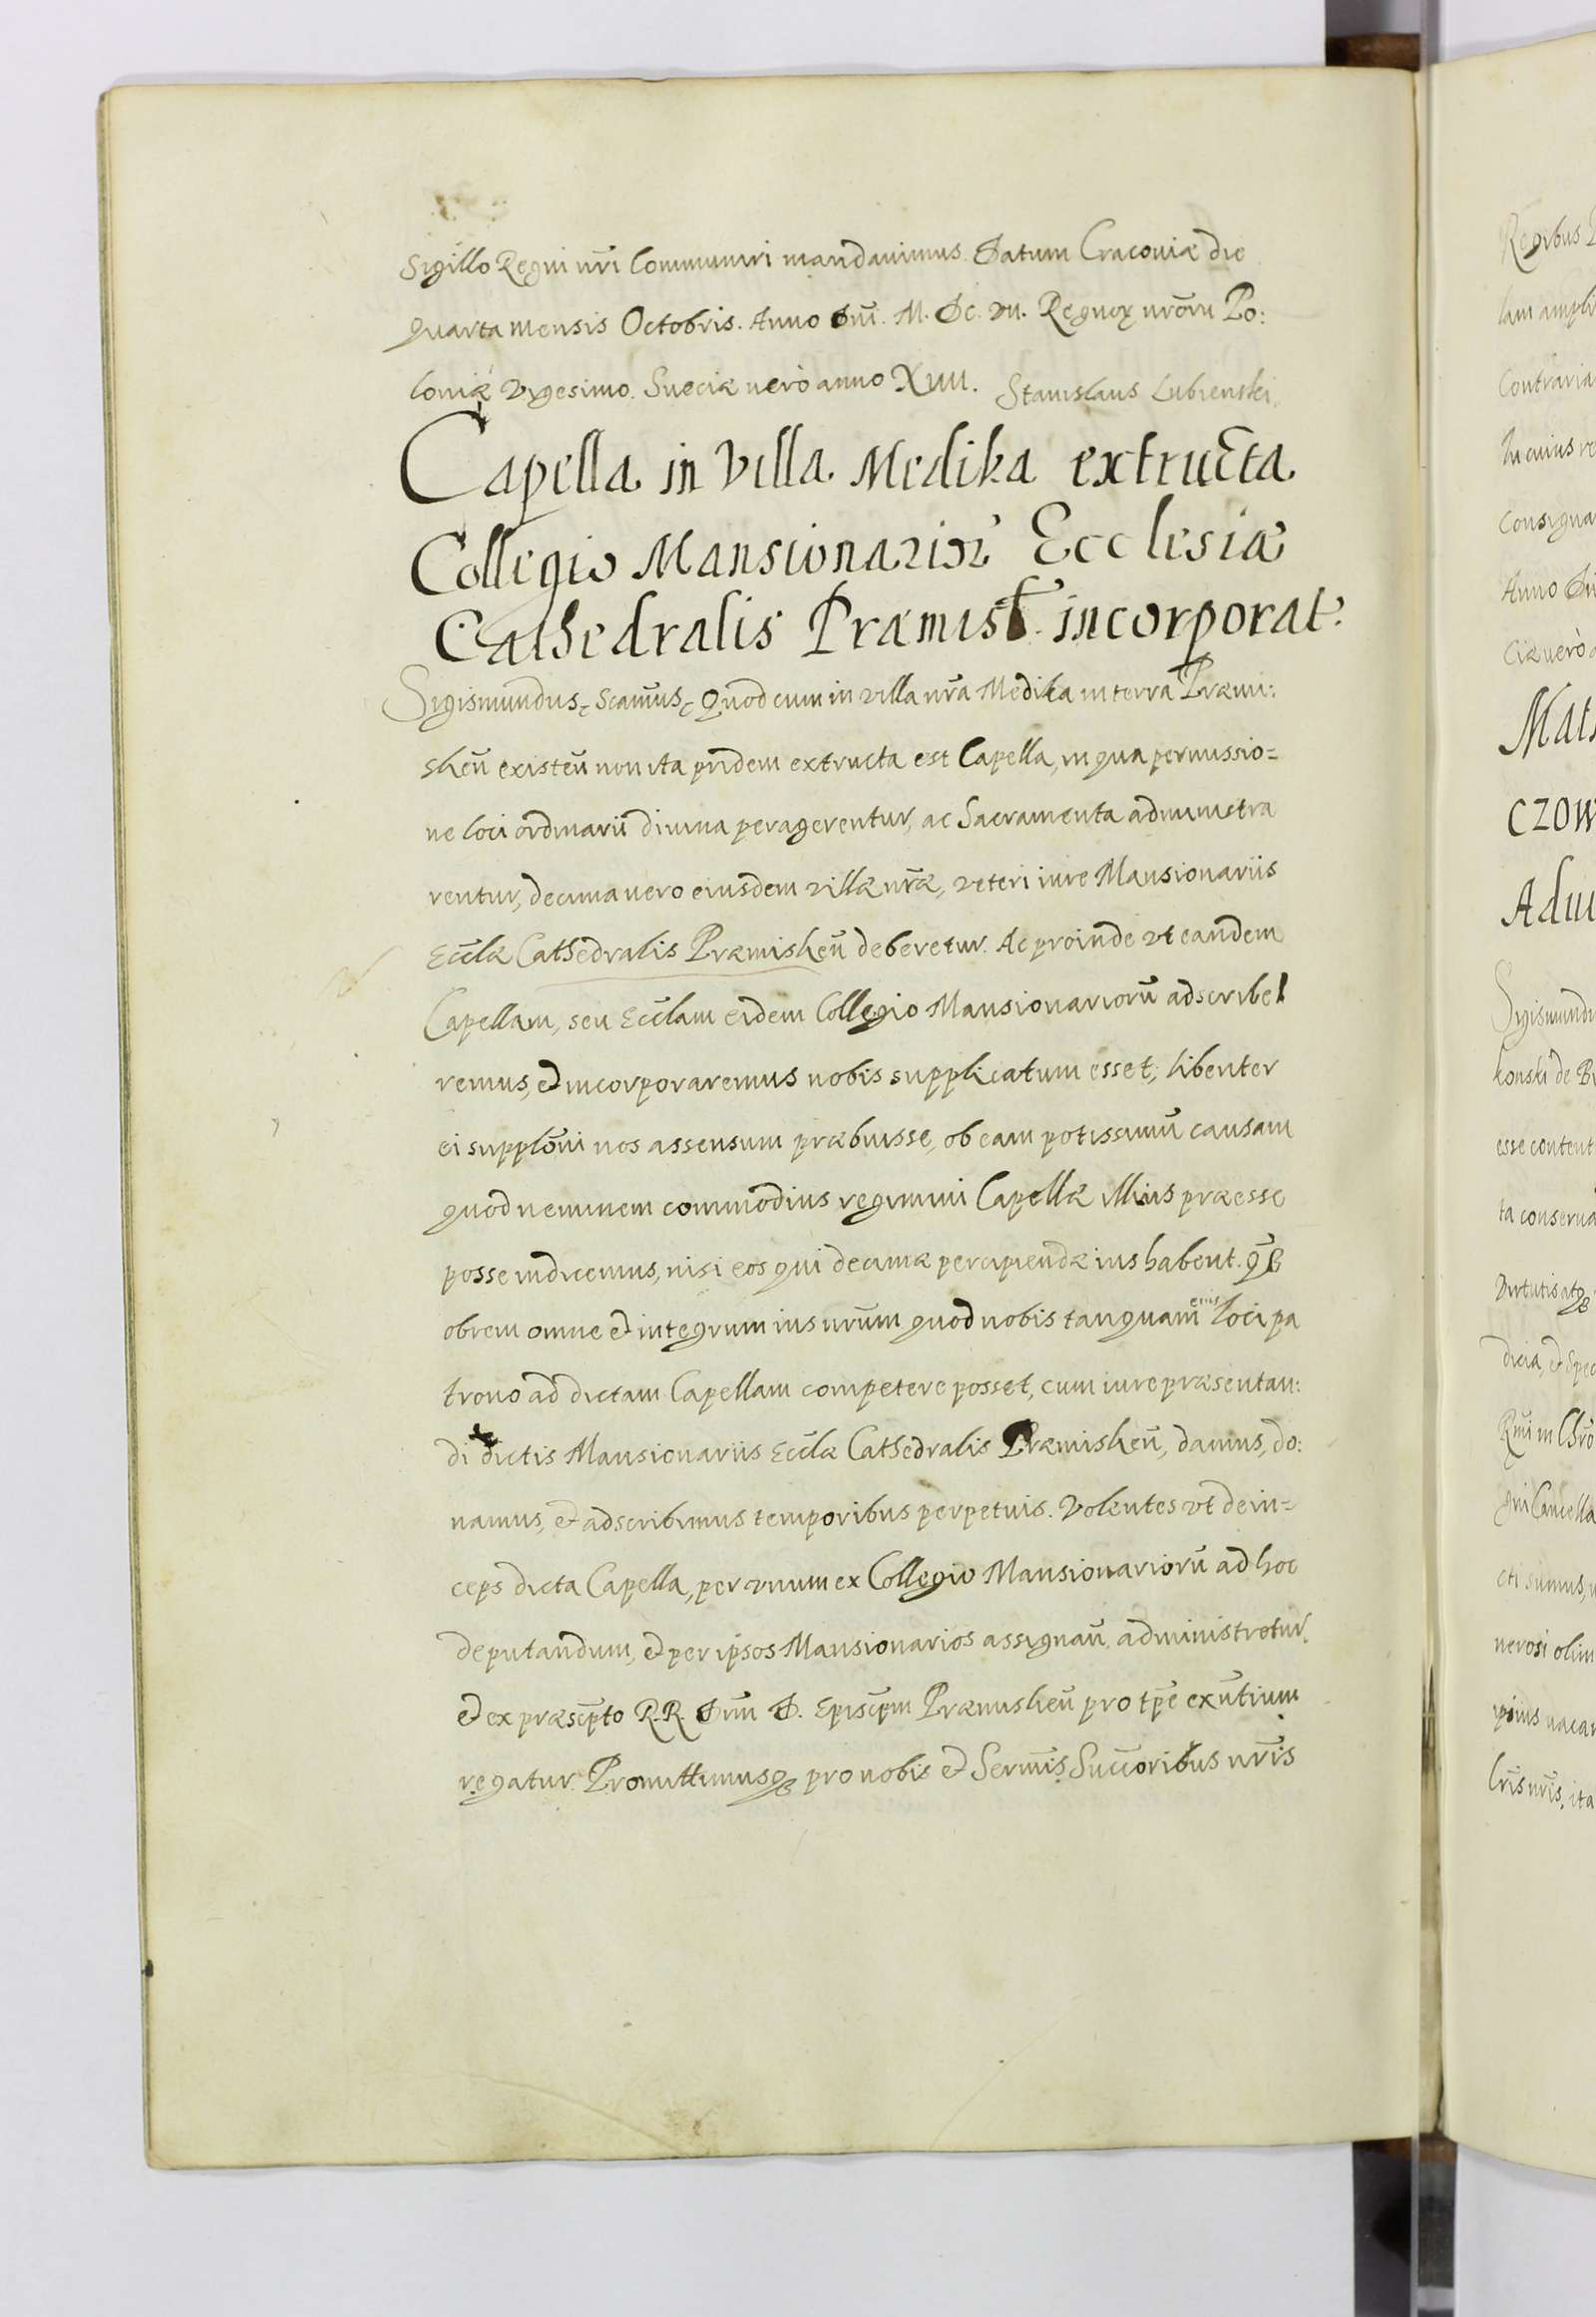 Sigillo Regni nr̃i Communiri mandavimus. Datum Cracoviæ die
quarta mensis Octobris. Anno Dnĩ. M. DC. VII. Regnoꝝ nrõru Po:
loniæ Vigesimo. Sueciæ verò anno XIIII. Stanislaus Lubienski.
Capella in Villa Medika extructa
Collegio Mansionarioꝝ Ecclesiæ
Cathedralis Præmisł. incorporat:
Sigismundus, Scamũs, Quod cum in villa nr̃a Medika in terra Præmi:
slieñ existeñ non ita pridem extructa est Capella, in qua permissio=
ne loci ordinarii divina peragerentur, ac Sacramenta administra
rentur, decima vero eiusdem villæ nr̃æ, veteri iure Mansionariis
Eccl̃æ Cathedralis Præmislieñ deberetur. Ac proinde vt eandem
Capellam, seu Eccl̃am eidem Collegio Mansionariorũ adscribe
remus, et incorporaremus nobis supplicatum esset, libenter
ei supplõni nos assensum præbuisse, ob eam potissimũ causam
quod neminem commodius regimini Capellæ illius præesse
posse iudicemus, nisi eos qui decimæ percipiendæ ius habent. Quã
obrem omne et integrum ius nrũm quod nobis tanquam eius loci pa
trono ad dictam Capellam competere posset, cum iure præsentan:
di dictis Mansionariis Eccl̃æ Cathedralis Præmislieñ, damus, do:
namus, et adscribimus temporibus perpetuis. Volentes vt dein=
ceps dicta Capella, per vnum ex Collegio Mansionariorũ ad hoc
deputandum, et per ipsos Mansionarios assignañ. administretur,
et ex præscp̃to R.R. Dnĩ D. Episcp̃m Præmislieñ pro tp̃e exñtium
regatur. Promittimusqꝫ pro nobis et Sermĩs. Succoribus nrĩs